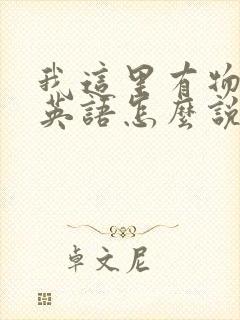 我這里有物
英語怎麼說
卓文尼